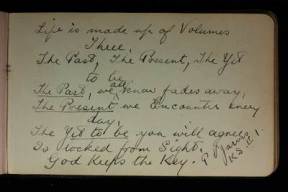 Life is made up of Volumes
Three,
The Past, The Present, The Yet
to be
The Past, we all know fades away,
The Present we Encounter every
day,
The Yet to be you will agree,
Is locked from Sight,
God Keeps the Key.